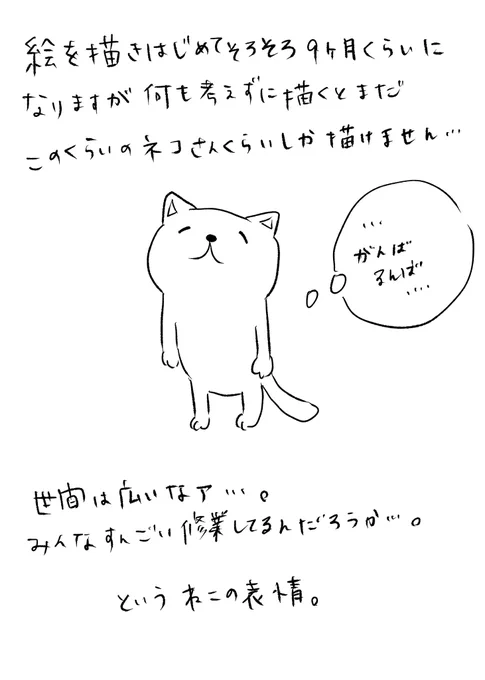 絵を描きはじめてそろそろ9ヶ月くらいに
なりますが 何も考えずに描くとまだ
このくらいのネコさんくらいしか描けません…
…
がんば
るんば
….
世間は広いなァ…。
みんなすんごい修業してるんだろうか…。
という ねこの表情。